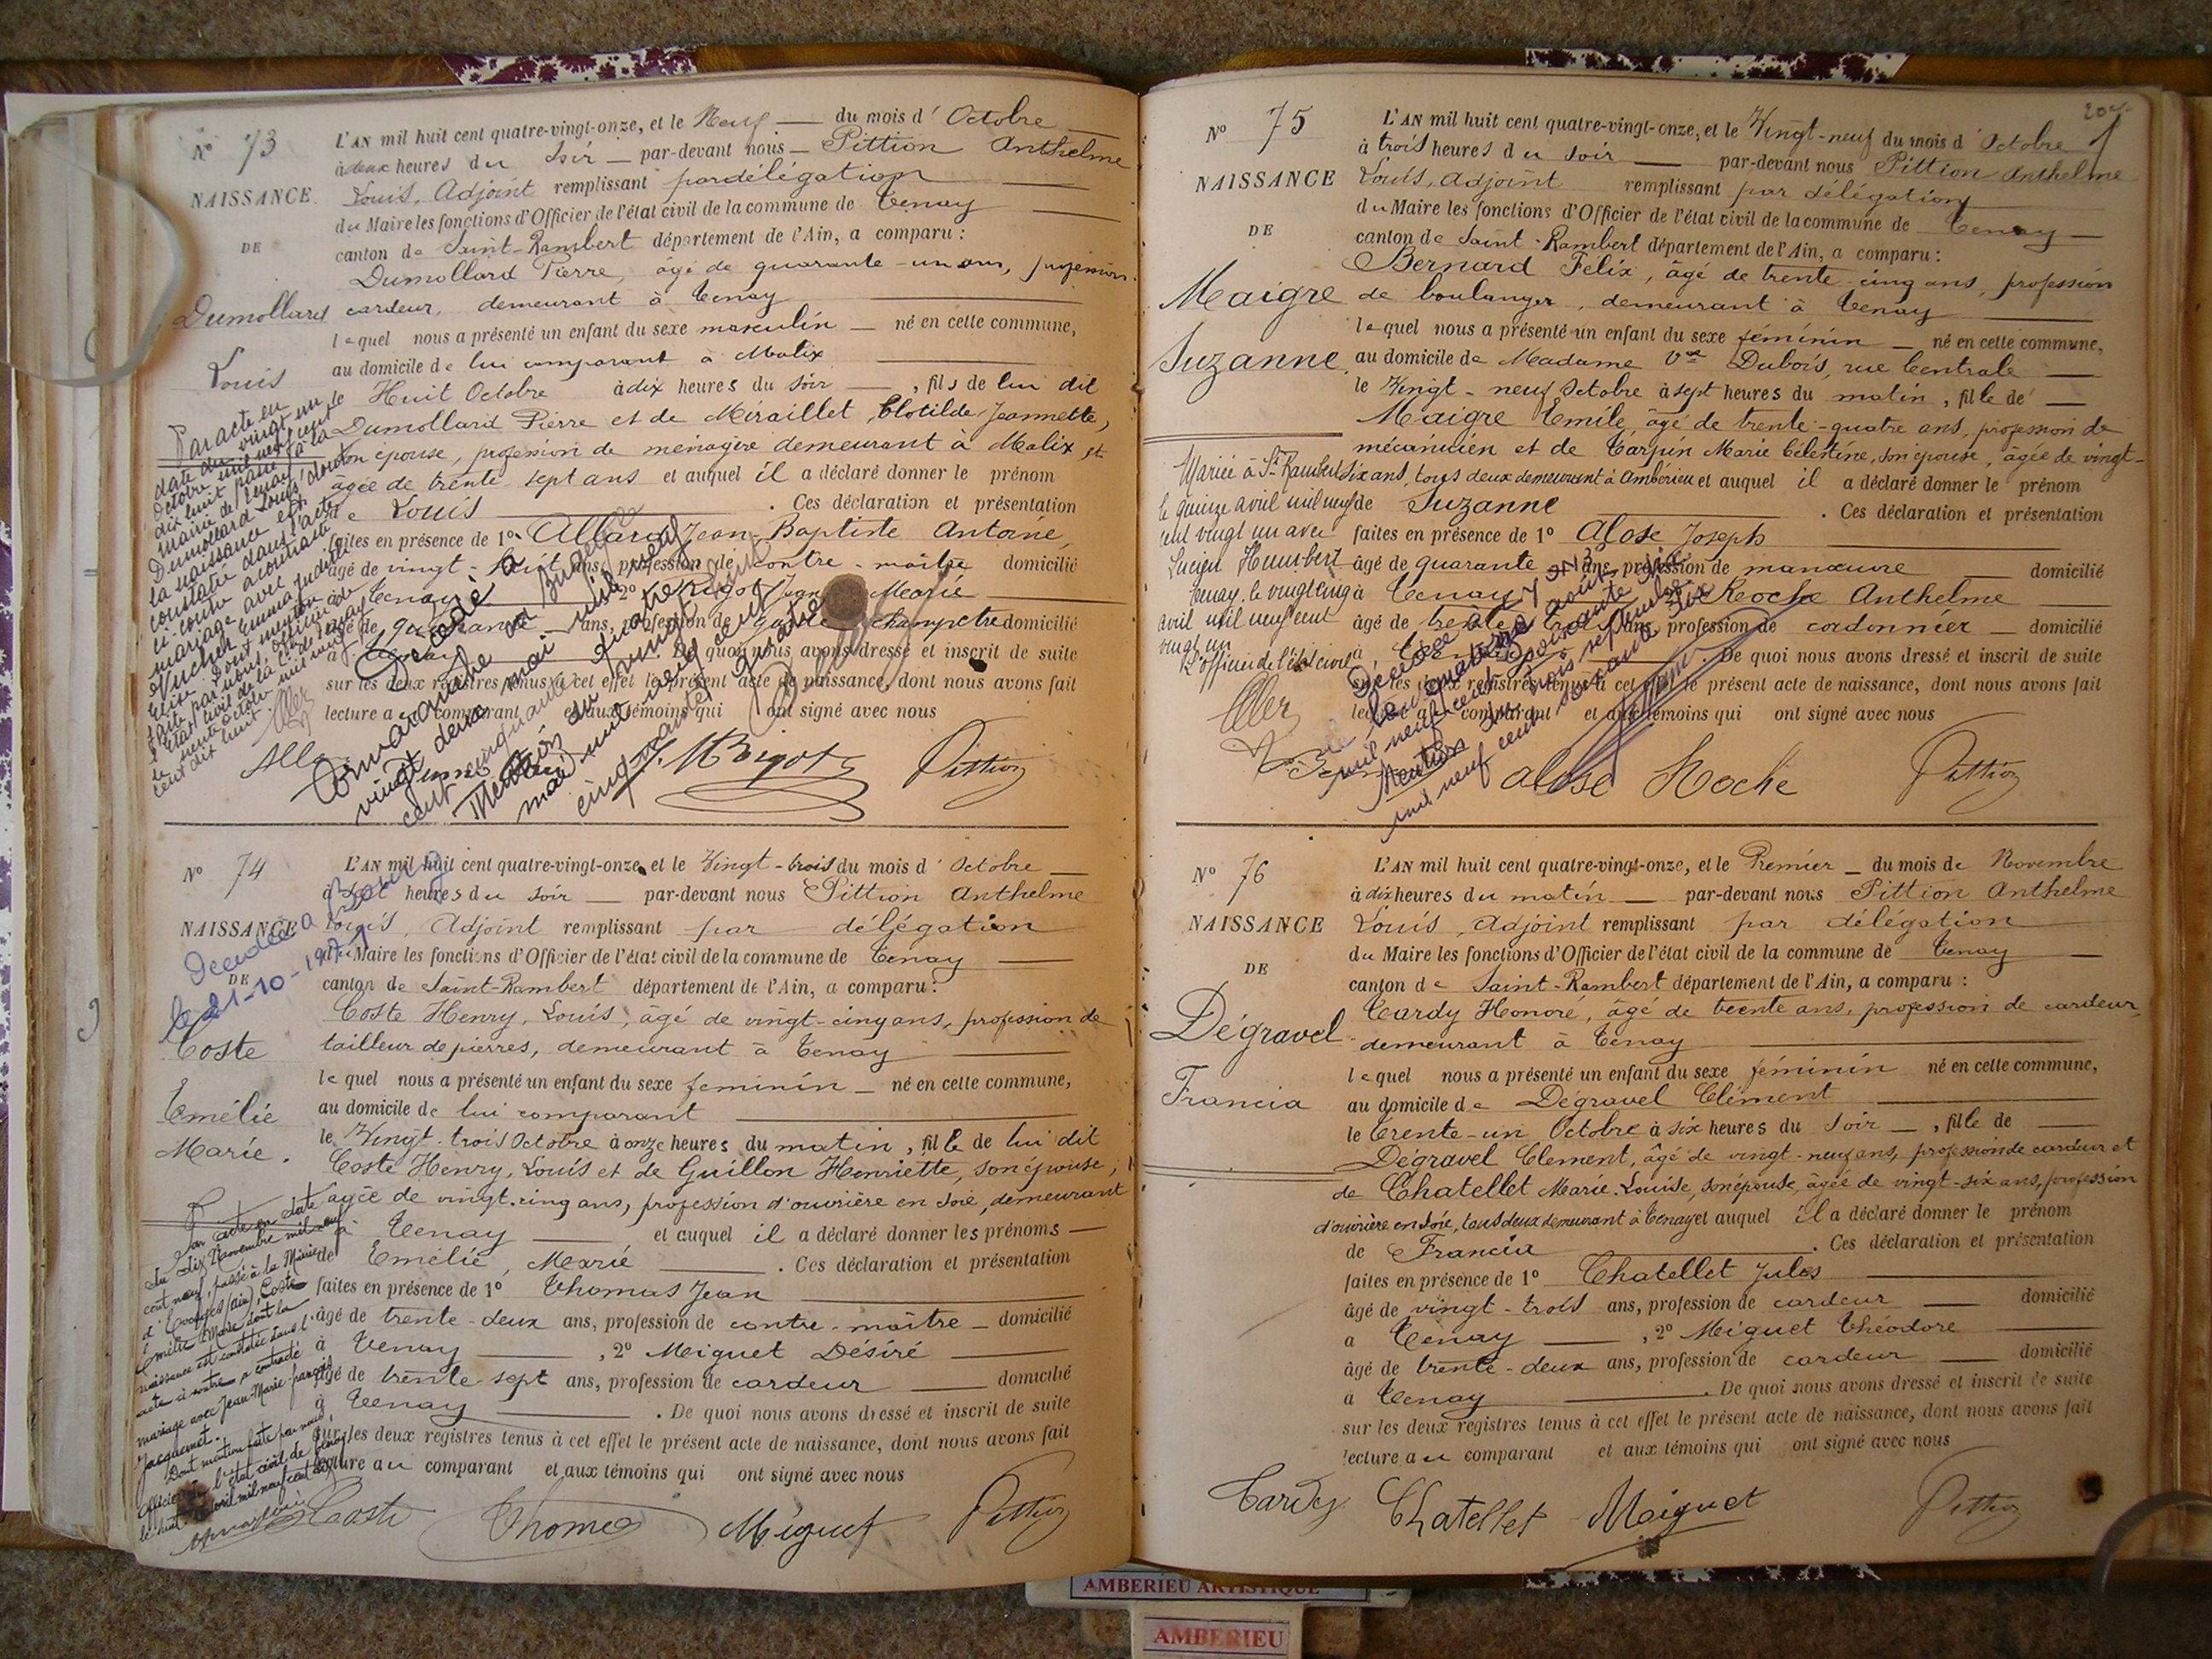 N° 73
NAISSANCE
DE
Dumollard
Louis
L'AN mil huit cent quatre-vingt-onze, et le Neuf du mois d' Octobre
à deux heures du soir par-devant nous Pittion Anthelme
Louis, Adjoint remplissant par délégation
du Maire les fonctions d'Officier de l'état civil de la commune de Tenay
canton de Saint-Rambert département de l'Ain, a comparu :
Dumollard Pierre, âgé de quarante-un ans, profession
cardeur, demeurant à Tenay
lequel nous a présenté un enfant du sexe masculin né en cette commune,
au domicile de lui comparant à Malix
le Huit Octobre à dix heures du soir, fils de lui dit
Dumollard Pierre et de Miraillet, Clotilde, Jeannette,
son épouse, profession de ménagère demeurant à Malix et
âgée de trente-sept ans et auquel il a déclaré donner le prénom
de Louis . Ces déclaration et présentation
faites en présence de 1° Allard Jean-Baptiste Antoine,
âgé de vingt-huit ans, profession de contre-maître domicilié
à Tenay , 2° Bigot Jean Marie
âgé de quarante ans, profession de garde champêtre domicilié
à Tenay . De quoi nous avons dressé et inscrit de suite
sur les deux registres tenus à cet effet le présent acte de naissance, dont nous avons fait
lecture au comparant et aux témoins qui ont signé avec nous
Par acte en
date du vingt un
Octobre mil neuf cent
dix huit passé à la
mairie de Tenay
Dumollard Louis, dont
la naissance est
constatée dans l'acte
ci-contre a contracté
mariage avec
Dont mention
faite par nous, officier de
l'état civil de Tenay
le trente octobre mil neuf
cent dix huit.
Décédé à
vingt deux mai mil neuf
cent cinquante quatre
Mention
mai mil neuf cent
cinquante quatre
JM Bigot Pittion
N° 74
NAISSANCE
DE
Coste
Emélie
Marie.
Décédée à
le 21-10-19
L'AN mil huit cent quatre-vingt-onze, et le Vingt-trois du mois d' Octobre
heures du soir par-devant nous Pittion Anthelme
Louis, Adjoint remplissant par délégation
du Maire les fonctions d'Officier de l'état civil de la commune de Tenay
canton de Saint-Rambert département de l'Ain, a comparu :
Coste Henry, Louis, âgé de vingt-cinq ans, profession de
tailleur de pierres, demeurant à Tenay
lequel nous a présenté un enfant du sexe feminin né en cette commune,
au domicile de lui comparant
le Vingt-trois Octobre à onze heures du matin, fille de lui dit
Coste Henry, Louis et de Guillon Henriette, son épouse,
agée de vingt-cinq ans, profession d'ouvrière en soie, demeurant
à Tenay et auquel il a déclaré donner les prénoms
de Emélie, Marie . Ces déclaration et présentation
faites en présence de 1° Thomas Jean
âgé de trente-deux ans, profession de contre-maître domicilié
à Tenay , 2° Miguet Désiré
âgé de trente-sept ans, profession de cardeur domicilié
à Tenay . De quoi nous avons dressé et inscrit de suite
sur les deux registres tenus à cet effet le présent acte de naissance, dont nous avons fait
lecture au comparant et aux témoins qui ont signé avec nous
Par acte en date
du dix Novembre mil neuf
cent neuf, passé à la Mairie
d'Evosges (Ain), Coste
Emélie Marie dont la
naissance est constatée dans l'
acte ci-contre a contracté
mariage avec Jean-Marie-françois
Jacquemet.
Dont mention faite par nous
officier de l'état civil de Tenay
Coste Thomas Miguet Pittion
N° 75
NAISSANCE
DE
Maigre
Suzanne.
L'AN mil huit cent quatre-vingt-onze, et le Vingt-neuf du mois d' Octobre
à trois heures du soir par-devant nous Pittion Anthelme
Louis, Adjoint remplissant par délégation
du Maire les fonctions d'Officier de l'état civil de la commune de Tenay
canton de Saint-Rambert département de l'Ain, a comparu :
Bernard Felix, âgé de trente-cinq ans, profession
de boulanger, demeurant à Tenay
lequel nous a présenté un enfant du sexe féminin né en cette commune,
au domicile de Madame Vve Dubois, rue Centrale
le Vingt-neuf Octobre à sept heures du matin, fille de
Maigre Emile, âgé de trente-quatre ans, profession de
mécanicien et de Carpin Marie Célestine, son épouse, âgée de vingt-
six ans, tous deux demeurant à Ambérieu et auquel il a déclaré donner le prénom
de Suzanne . Ces déclaration et présentation
faites en présence de 1° Alose Joseph
âgé de quarante ans, profession de manœuvre domicilié
à Tenay , 2° Roche Anthelme
âgé de trente trois ans, profession de cordonnier domicilié
à Tenay . De quoi nous avons dressé et inscrit de suite
sur les deux registres tenus à cet effet le présent acte de naissance, dont nous avons fait
lecture au comparant et aux témoins qui ont signé avec nous
Mariée à St Rambert
le quinze avril mil neuf
cent vingt un avec
Lucien Humbert
Tenay, le vingt cinq
avril mil neuf cent
vingt un
L'officier de l'état civil
Décédée
le quatorze août
mil neuf cent soixante six
Mention le trois septembre
mil neuf cent soixante six
Alose Roche Pittion
N° 76
NAISSANCE
DE
Dégravel
Francia
L'AN mil huit cent quatre-vingt-onze, et le Premier du mois de Novembre
à dix heures du matin par-devant nous Pittion Anthelme
Louis, Adjoint remplissant par délégation
du Maire les fonctions d'Officier de l'état civil de la commune de Tenay
canton de Saint-Rambert département de l'Ain, a comparu :
Tardy Honoré, âgé de trente ans, profession de cardeur,
demeurant à Tenay
lequel nous a présenté un enfant du sexe féminin né en cette commune,
au domicile de Dégravel Clément
le Trente-un Octobre à six heures du soir, fille de
Dégravel Clément, âgé de vingt-neuf ans, profession de cardeur et
de Chatellet Marie-Louise, son épouse, âgée de vingt-six ans, profession
d'ouvrière en soie, tous deux demeurant à Tenay et auquel il a déclaré donner le prénom
de Francia . Ces déclaration et présentation
faites en présence de 1° Chatellet Jules
âgé de vingt-trois ans, profession de cardeur domicilié
à Tenay , 2° Miguet Théodore
âgé de trente-deux ans, profession de cardeur domicilié
à Tenay . De quoi nous avons dressé et inscrit de suite
sur les deux registres tenus à cet effet le présent acte de naissance, dont nous avons fait
lecture au comparant et aux témoins qui ont signé avec nous
Tardy Chatellet Miguet Pittion
AMBERIEU ARTISTIQUE
AMBERIEU